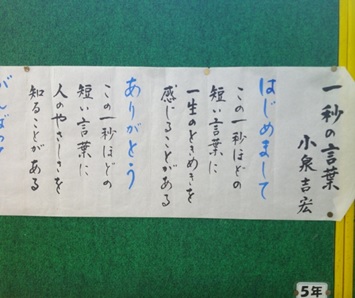 一秒の言葉
小泉吉宏
はじめまして
この一秒ほどの
短い言葉に
一生のときめきを
感じることがある
ありがとう
この一秒ほどの
短い言葉に
人のやさしさを
知ることがある
がんばって
5年